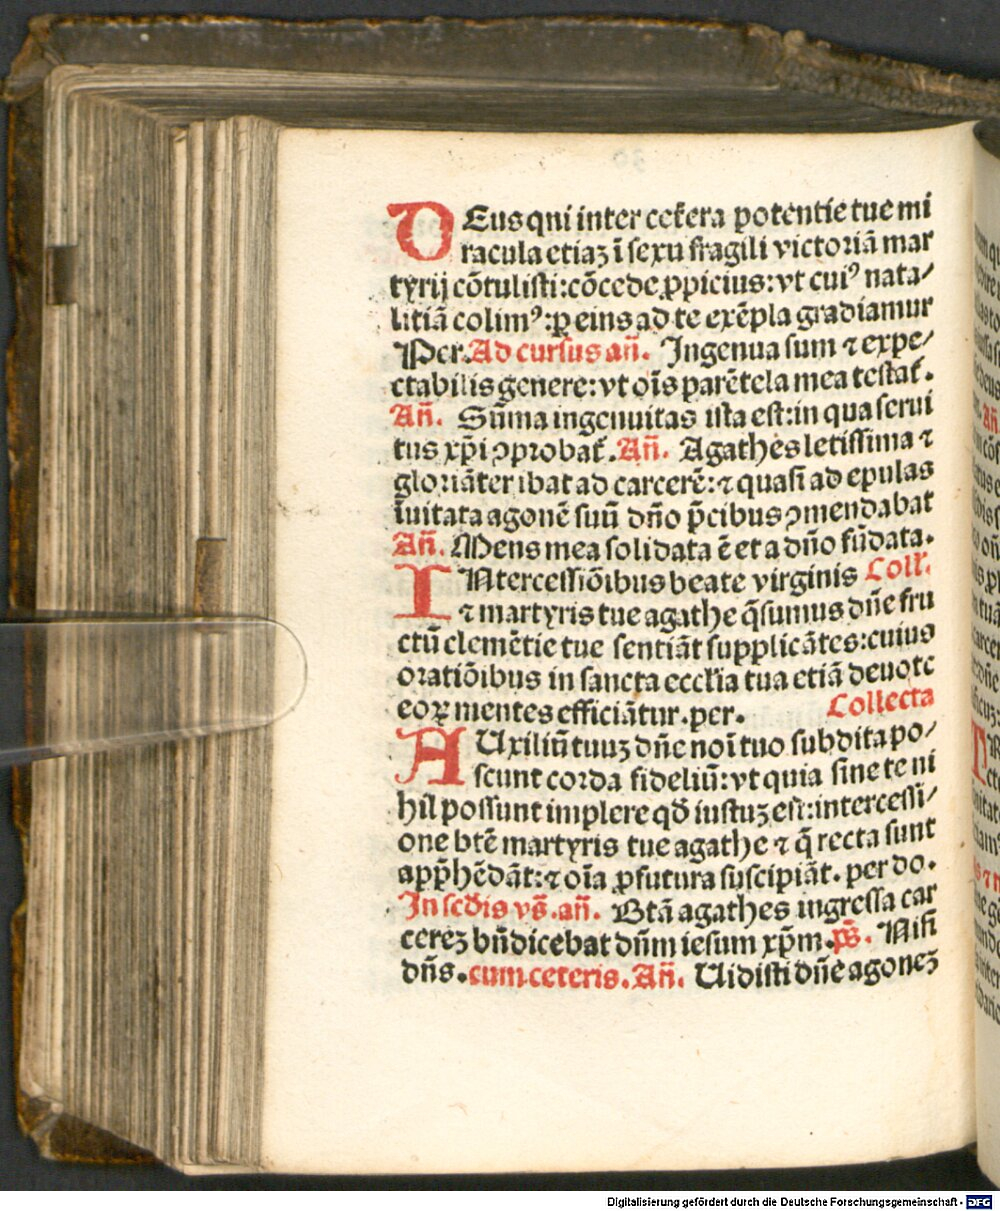 DEus qui inter ceťera potentie tue mi
racula etiaꝫ ī sexu fragili victoriā mar
tyrij cōtulisti: cōcede ꝓpicius: vt cuiꝰ nata⸗
litiā colimꝰ: ꝑ eins ad te exēpla gradiamur
Per. Ad cursus añ. Ingenua sum ⁊ expe⸗
ctabilis genere: vt oīs parētela mea testať.
Añ. Sūma ingenuitas ista est: in qua serui
tus xp̄i ꝓprobať. Añ. Agathes letissima ⁊
gloriāter ibat ad carcerē: ⁊ quasi ad epulas
īuitata agonē suū dño p̄cibus ꝯmendabat
Añ. Mens mea solidata ē et a dño fūdata.
INtercessiōibus beate virginis Coll.
⁊ martyris tue agathe q̄sumus dñe fru
ctū clemētie tue sentiāt supplicātes: cuius
oratiōibus in sancta eccłia tua etiā deuote
eoꝝ mentes efficiātur. per. Collecta
AUxiliū tuuꝫ dñe noī tuo subdita po⸗
scunt corda fideliū: vt quia sine te ni
hil possunt implere qđ iustuꝫ est: intercessi⸗
one btē martyris tue agathe ⁊ q̄ recta sunt
app̄hēdāt: ⁊ oīa ꝓfutura suscipiāt. per do.
In scđis vs̄. añ. Btā agathes ingressa car
cereꝫ bñdicebat dñm iesum xp̄m. ps̄. Nisi
dñs. cum ceteris. Añ. Uidisti dñe agoneꝫ
Digitalisierung gefördert durch die Deutsche Forschungsgemeinschaft - DFG